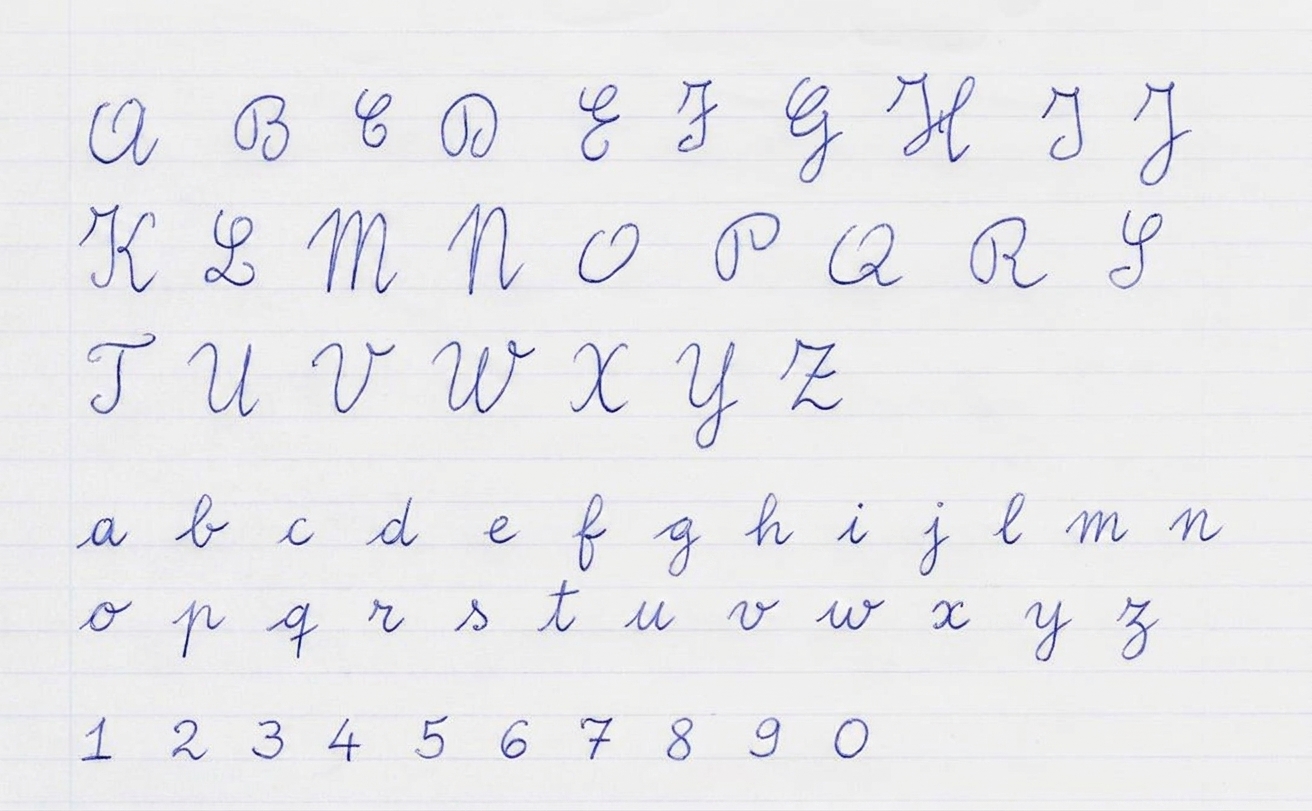 A B C D E F G H I J
K L M N O P Q R S
T U V W X Y Z
a b c d e f g h i j l m n
o p q r s t u v w x y z
1 2 3 4 5 6 7 8 9 0